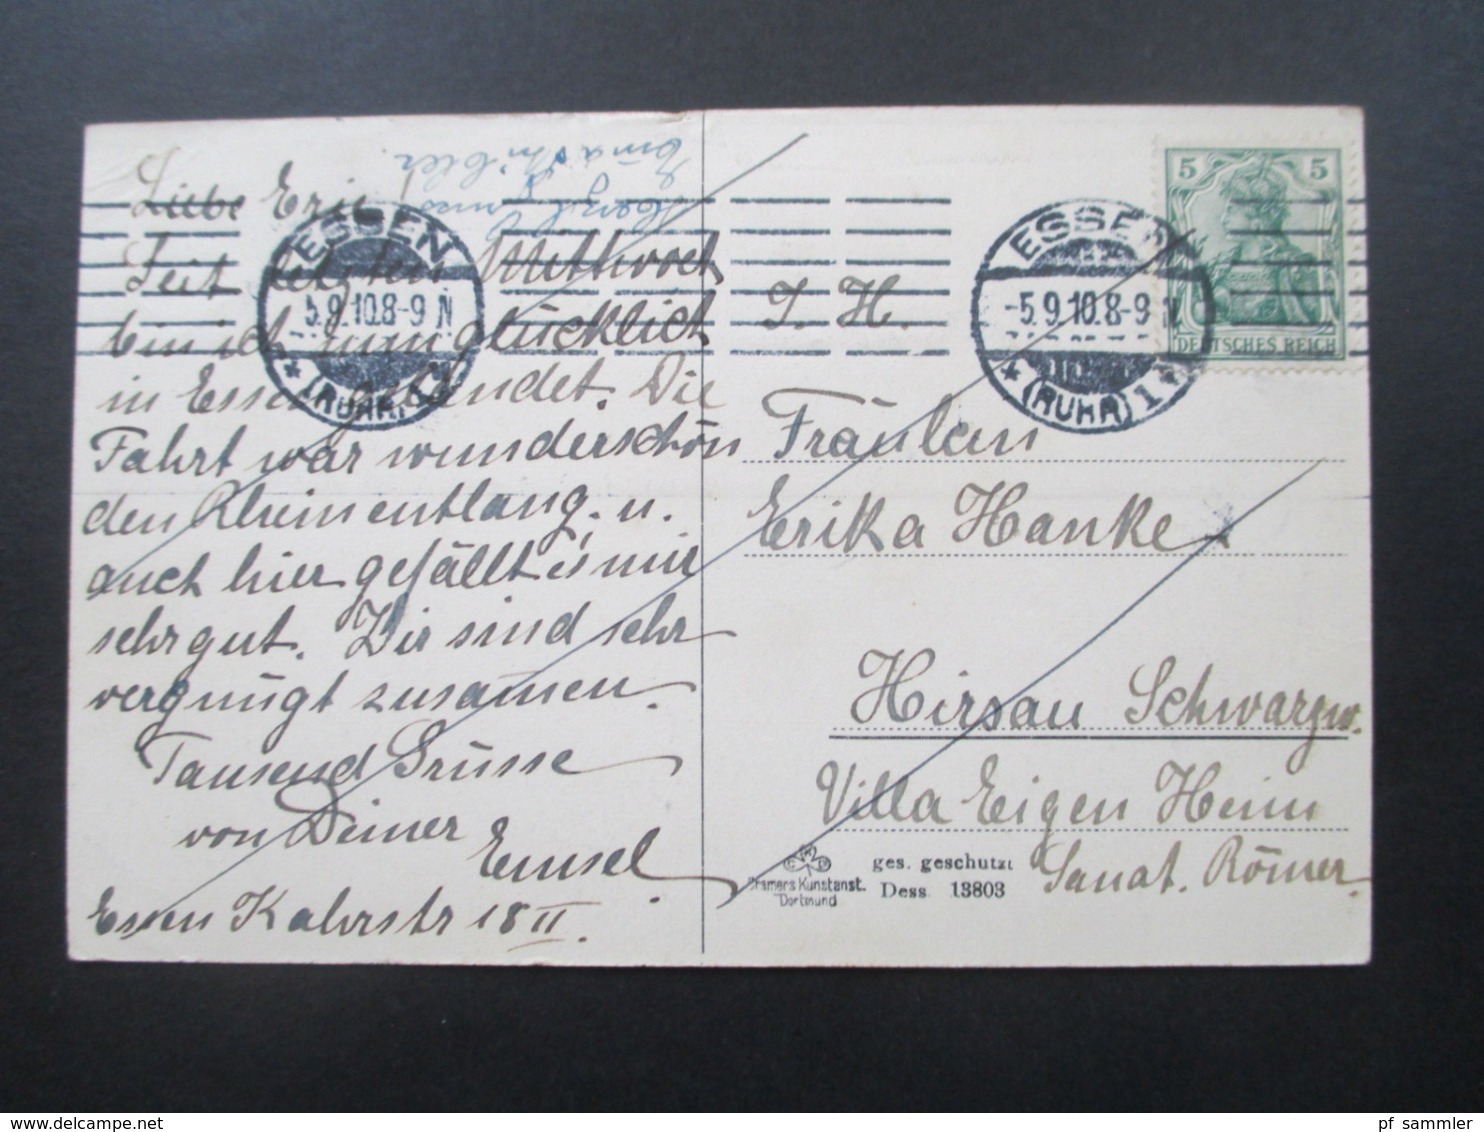 Liebe Eri!
Seit letzten Mittwoch
bin ich nun glücklich
in Essen gelandet. Die
Fahrt war wunderschön
den Rhein entlang. u.
auch hier gefällt es mir
sehr gut. Wir sind sehr
vergnügt zusamen.
Tausend Grüsse
von Deiner
Emsel
Essen Kahrstr 18 II.
ESSEN
5.9.10.8-9 N
(RUHR) 1
ESSEN
-5.9.10.8-9 N
(RUHR) 1
5 5
DEUTSCHES REICH
I. H.
Fräulein
Erika Hanke
Hirsau Schwarzw.
Villa Eigen Heim
Sanat. Römer
Cramers Kunstanst.
Dortmund
ges. geschützt
Dess. 13803
pf_sammler